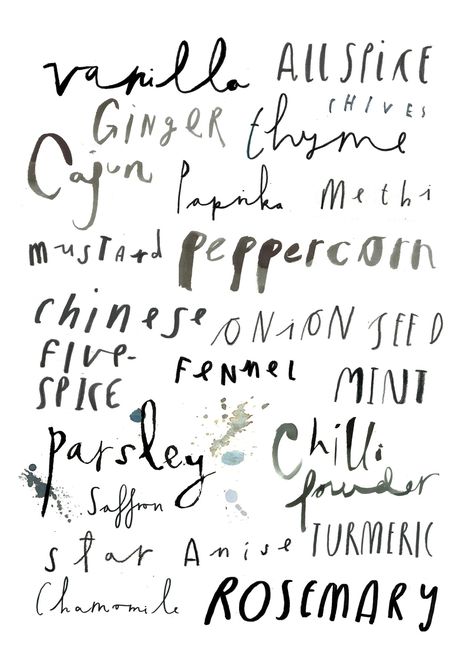 vanilla ALLSPICE
GINGER CHIVES
thyme
Cajun Paprika Methi
mustard peppercorn
chinese FIVE-SPICE
ONION SEED
FENNEL MINT
parsley Chilli powder
Saffron
star Anise TURMERIC
Chamomile ROSEMARY